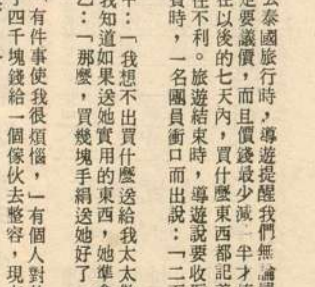 去泰國旅行時，導遊提醒我們無論
定要議價，而且價錢最少減一半才
在以後的七天內，買什麼東西都記
往不利。旅遊結束時，導遊說要收
費時，一名團員衝口而出說：「二
：「我想不出買什麼送給我太太
我知道如果送她實用的東西，她準會
乙：「那麼，買幾塊手絹送她好了
「有件事使我很煩惱，」有個人對
四千塊錢給一個傢伙去整容，現